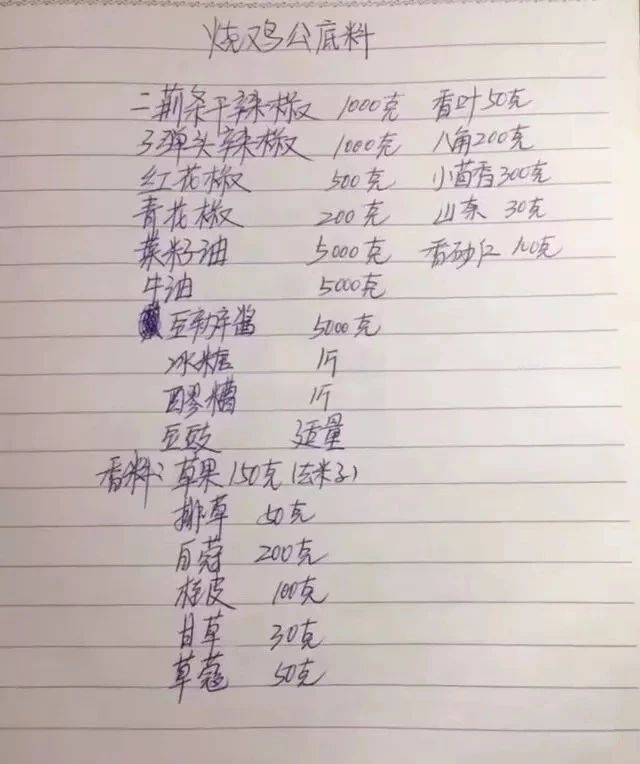 烧鸡公底料
二荆条干辣椒 1000克 香叶50克
子弹头辣椒 1000克 八角200克
红花椒 500克 小茴香300克
青花椒 200克 山柰 30克
菜籽油 5000克 香砂仁 100克
牛油 5000克
豆瓣酱 5000克
冰糖 1斤
醪糟 1斤
豆豉 适量
香料: 草果150克(去米子)
排草 50克
白蔻 200克
桂皮 100克
甘草 30克
草蔻 50克